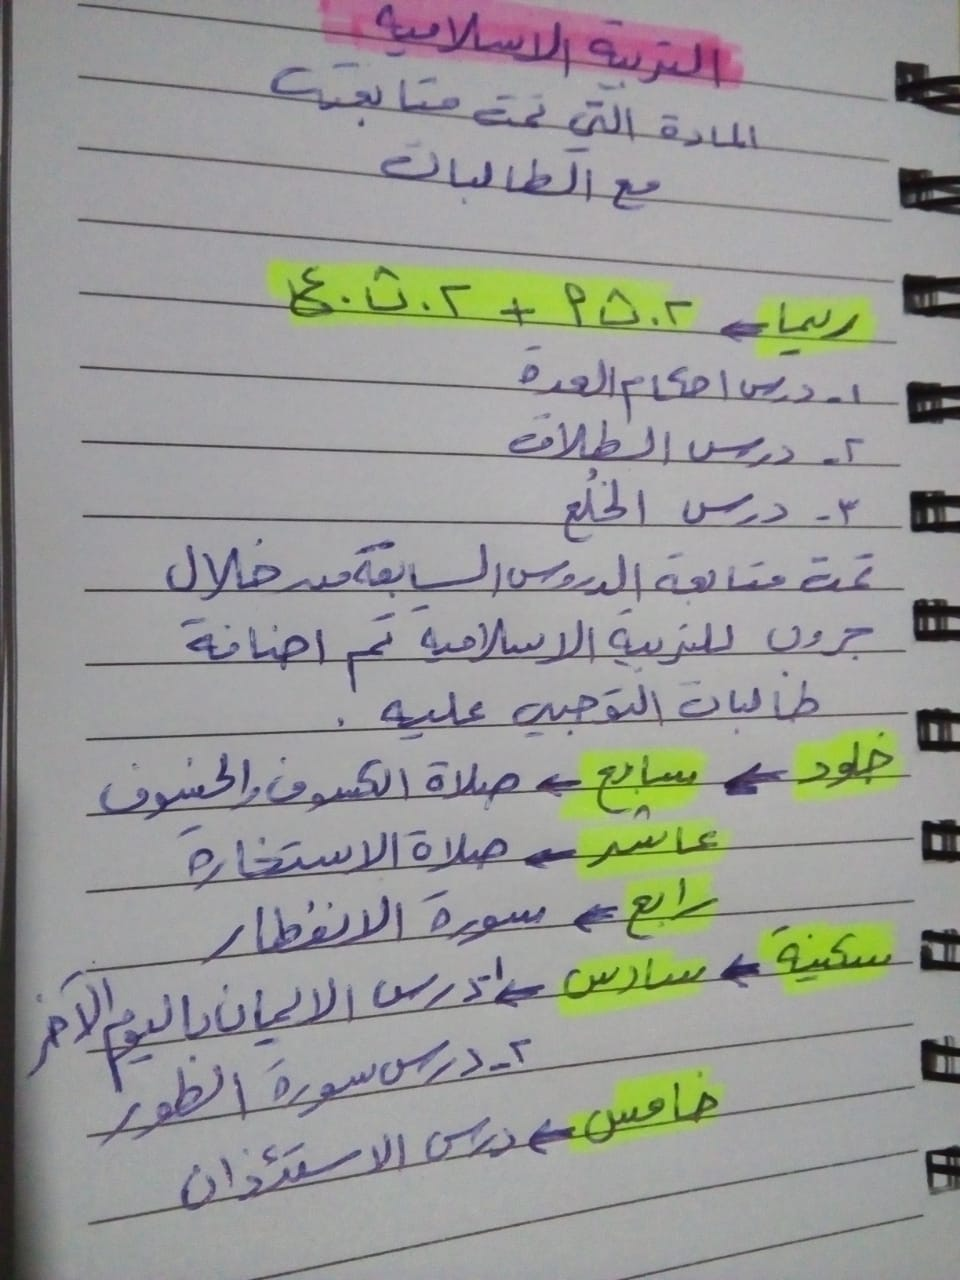 التربية الاسلامية
المادة التي تمت متابعتها
مع الطالبات
ريما ← ٢.ث٩ + ٢.ث.ع
١- درس احكام العدة
٢- درس الطلاق
٣- درس الخُلع
تمت متابعة الدروس السابقة من خلال
جروب للتربية الاسلامية تم اضافة
طالبات التوجيهي عليه .
خلود ← سابع ← صلاة الكسوف والخسوف
عاشر ← صلاة الاستخارة
رابع ← سورة الانفطار
سكينة ← سادس ← ١- درس الايمان باليوم الآخر
٢- درس سورة الطور
خامس ← درس الاستئذان